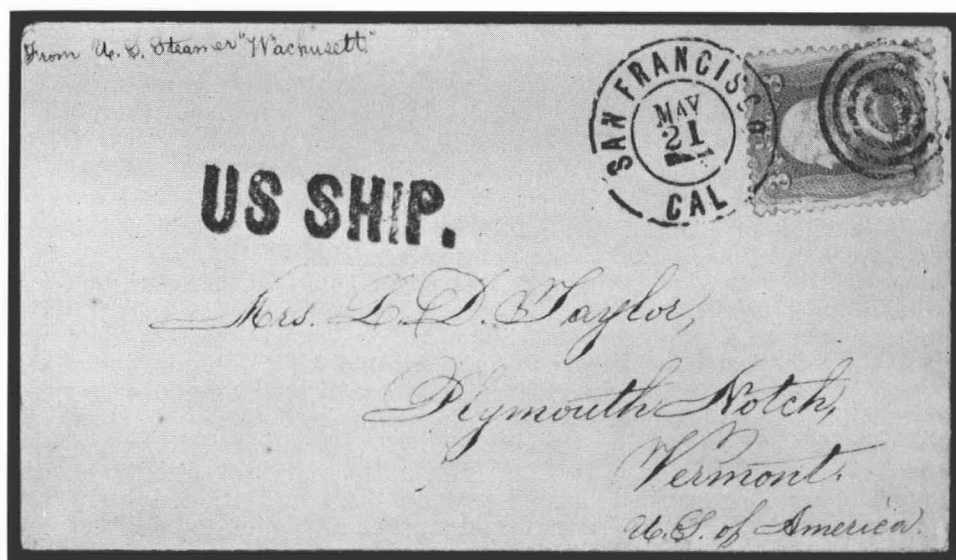 From U.S. Steamer "Wachusett"
SAN FRANCISCO
MAY
21
CAL
3 3
US SHIP.
Mrs. L. D. Taylor,
Plymouth Notch,
Vermont.
U.S. of America.